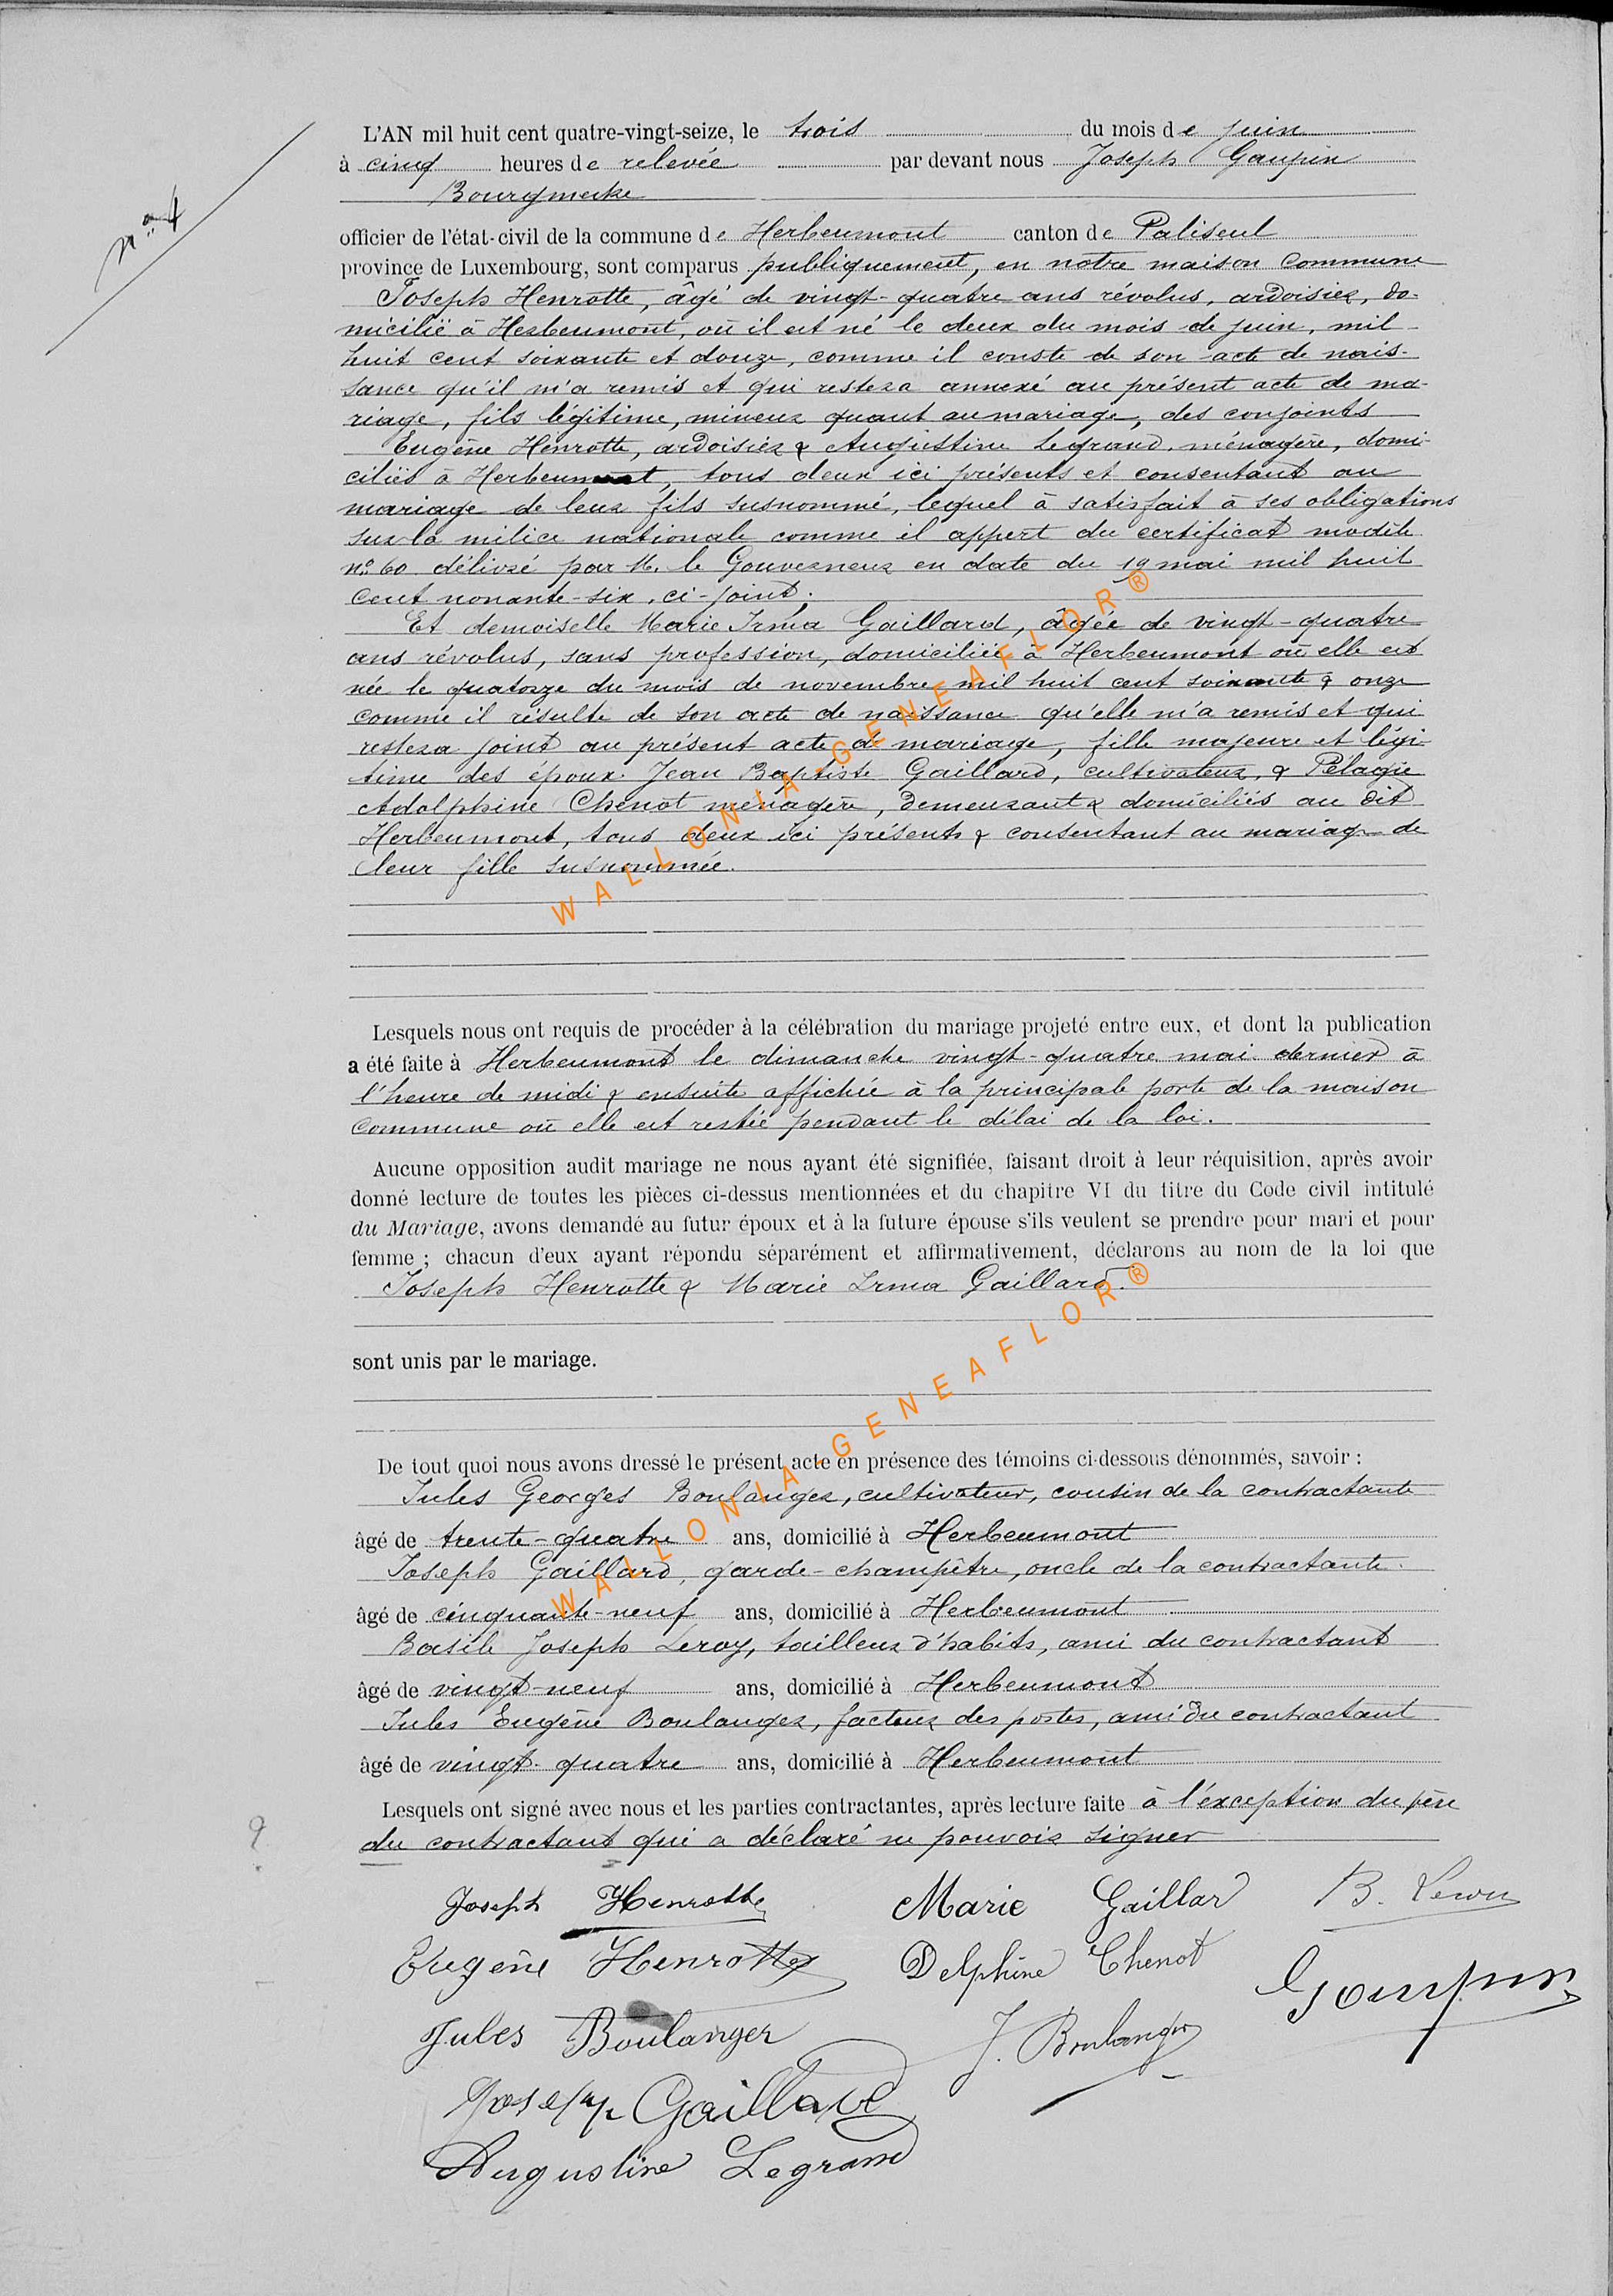 N° 4
L'AN mil huit cent quatre-vingt-seize, le trois du mois de juin
à cinq heures de relevée par devant nous Joseph Gaupin
Bourgmestre
officier de l'état-civil de la commune de Herbeumont canton de Paliseul
province de Luxembourg, sont comparus publiquement, en notre maison commune
Joseph Henrotte, âgé de vingt-quatre ans révolus, ardoisier, do-
micilié à Herbeumont, où il est né le deux du mois de juin, mil
huit cent soixante et douze, comme il conste de son acte de nais-
sance qu'il m'a remis et qui restera annexé au présent acte de ma-
riage, fils légitime, mineur quant au mariage, des conjoints
Eugène Henrotte, ardoisier & Augustine Legrand, ménagère, domi-
ciliés à Herbeumont, tous deux ici présents et consentant au
mariage de leur fils susnommé, lequel à satisfait à ses obligations
sur la milice nationale comme il appert du certificat modèle
n° 60 délivré par M. le Gouverneur en date du 19 mai mil huit
cent nonante-six, ci-joint;
Et demoiselle Marie Irma Gaillard, âgée de vingt-quatre
ans révolus, sans profession, domiciliée à Herbeumont où elle est
née le quatorze du mois de novembre mil huit cent soixante & onze
comme il résulte de son acte de naissance qu'elle m'a remis et qui
restera joint au présent acte de mariage, fille majeure et légi-
time des époux Jean Baptiste Gaillard, cultivateur, & Pélagie
Adolphine Chenot ménagère, demeurant & domiciliés au dit
Herbeumont, tous deux ici présents & consentant au mariage de
leur fille susnommée.
WALLONIA-GENEAFLOR®
Lesquels nous ont requis de procéder à la célébration du mariage projeté entre eux, et dont la publication
a été faite à Herbeumont le dimanche vingt-quatre mai dernier à
l'heure de midi & ensuite affichée à la principale porte de la maison
commune où elle est restée pendant le délai de la loi.
Aucune opposition audit mariage ne nous ayant été signifiée, faisant droit à leur réquisition, après avoir
donné lecture de toutes les pièces ci-dessus mentionnées et du chapitre VI du titre du Code civil intitulé
du Mariage, avons demandé au futur époux et à la future épouse s'ils veulent se prendre pour mari et pour
femme ; chacun d'eux ayant répondu séparément et affirmativement, déclarons au nom de la loi que
Joseph Henrotte & Marie Irma Gaillard.
sont unis par le mariage.
WALLONIA-GENEAFLOR®
De tout quoi nous avons dressé le présent acte en présence des témoins ci-dessous dénommés, savoir :
Jules Georges Boulanger, cultivateur, cousin de la contractante
âgé de trente-quatre ans, domicilié à Herbeumont
Joseph Gaillard, garde-champêtre, oncle de la contractante.
âgé de cinquante-neuf ans, domicilié à Herbeumont
Basile Joseph Leroy, tailleur d'habits, ami du contractant
âgé de vingt-neuf ans, domicilié à Herbeumont
Jules Eugène Boulanger, facteur des postes, ami du contractant
âgé de vingt-quatre ans, domicilié à Herbeumont
Lesquels ont signé avec nous et les parties contractantes, après lecture faite à l'exception du père
du contractant qui a déclaré ne pouvoir signer
?
Joseph Henrotte Marie Gaillard B. Leroy
Eugène Henrotte Delphine Chenot
Jules Boulanger J. Boulanger
Joseph Gaillard
Augustine Legrand